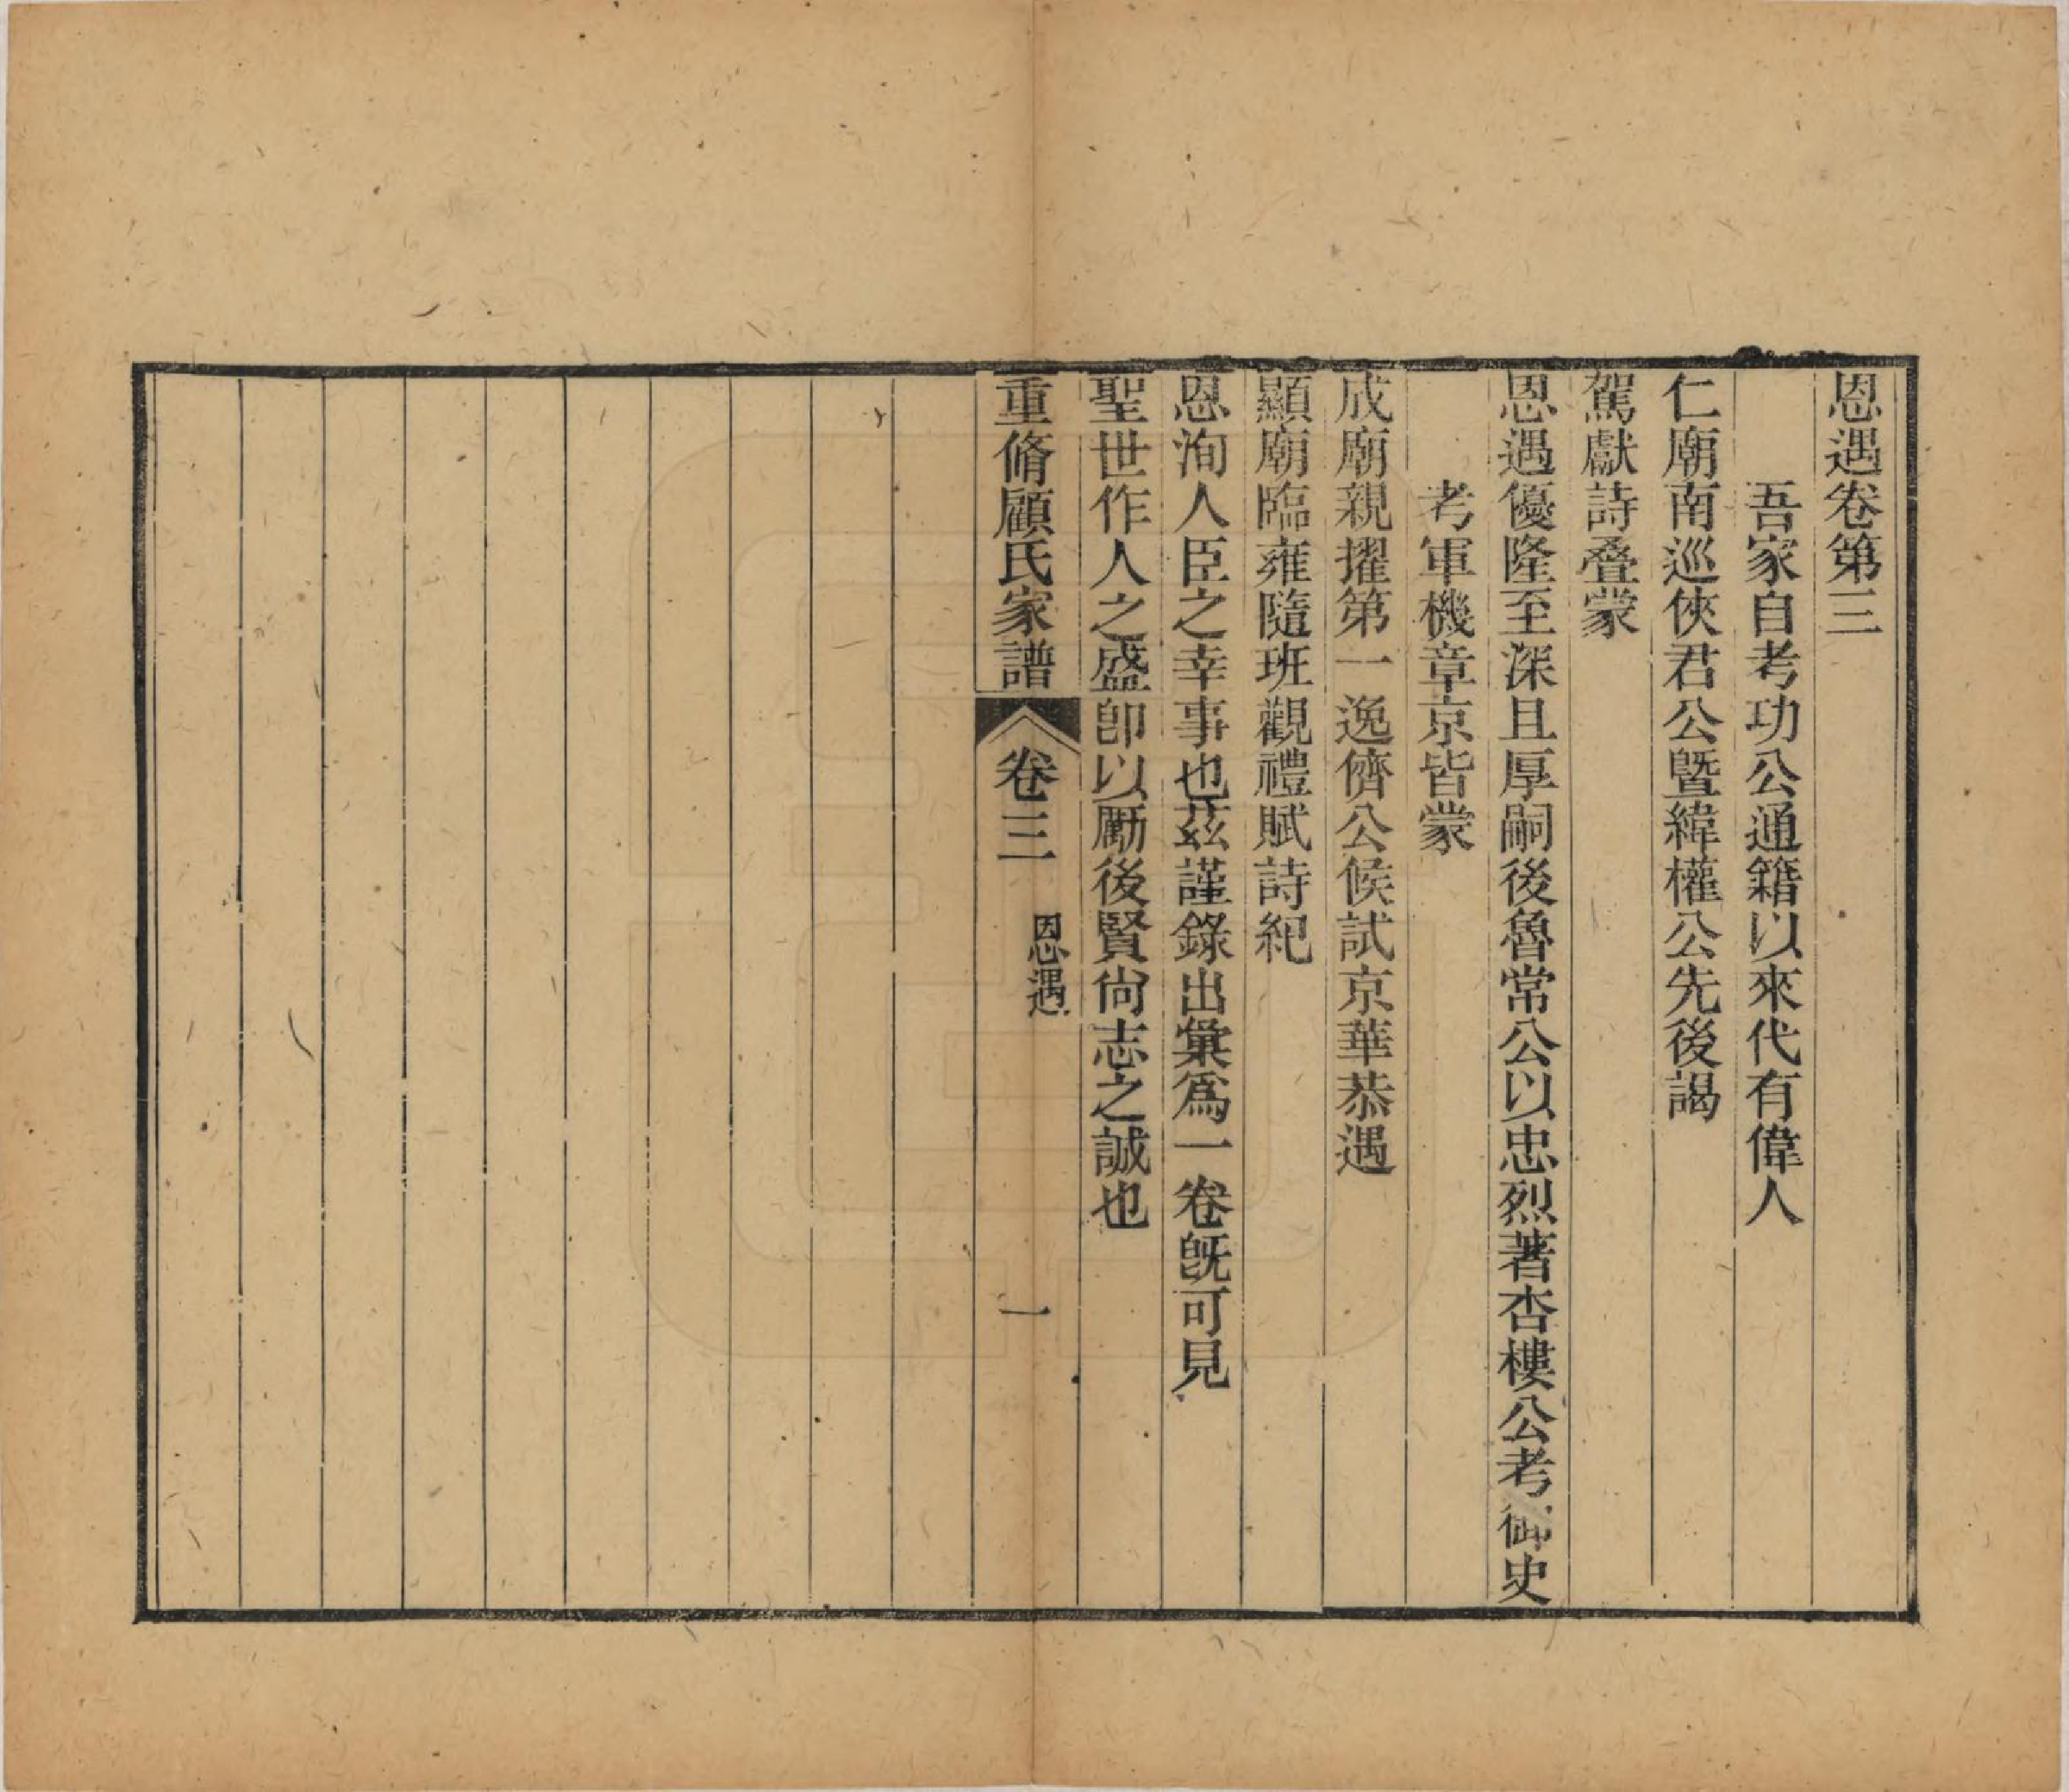 恩遇卷第三
吾家自考功公通籍以來代有偉人
仁廟南巡俠君公曁緯權公先後謁
駕獻詩叠蒙
恩遇優隆至深且厚嗣後魯常公以忠烈著杏樓公考御史
考軍機章京皆蒙
成廟親擢第一逸儕公候試京華恭遇
顯廟臨雍隨班觀禮賦詩紀
恩洵人臣之幸事也茲謹錄出彙爲一卷旣可見
聖世作人之盛卽以勵後賢尙志之誠也
重脩顧氏家譜
卷三
恩遇
一